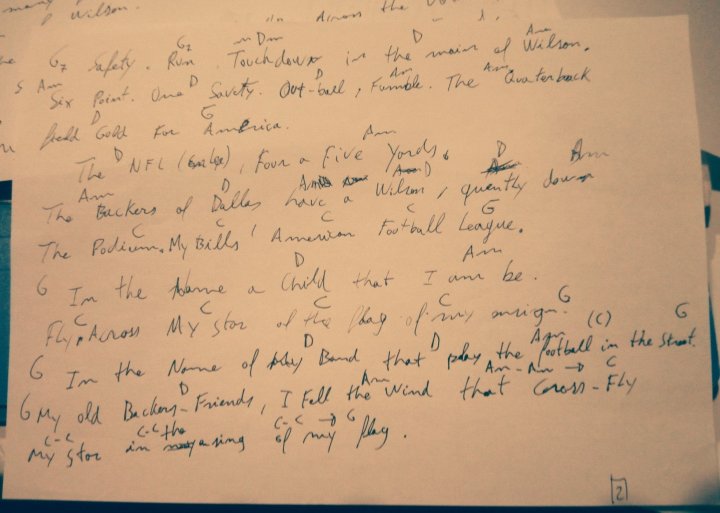 many
of Wilson.
in Across the
G7 G7 Dm D Am
Safety. Run. Touchdown in the main of Wilson.
S Am D D Am Am
Six Point. One Savety. Out-ball, Fumble. The Quaterback
D G
field Gold For America.
D Am
The NFL, Four a Five Yards.
Am D D Am
The Backers of Dallas have a Wilson, quently down
C C C C G
The Podium. My Bills' American Football League.
G D Am
In the Name a Child that I am be.
C C C C G
Fly Across My Star of the flag of my ensign.
G D D Am (C) G
In the Name of Band that play the football in the Street.
G D Am Am-Am → C
My old Backers-Friends, I Fell the Wind that Cross-Fly
C-C C-C C-C → G
My Star in the of my flag.
2